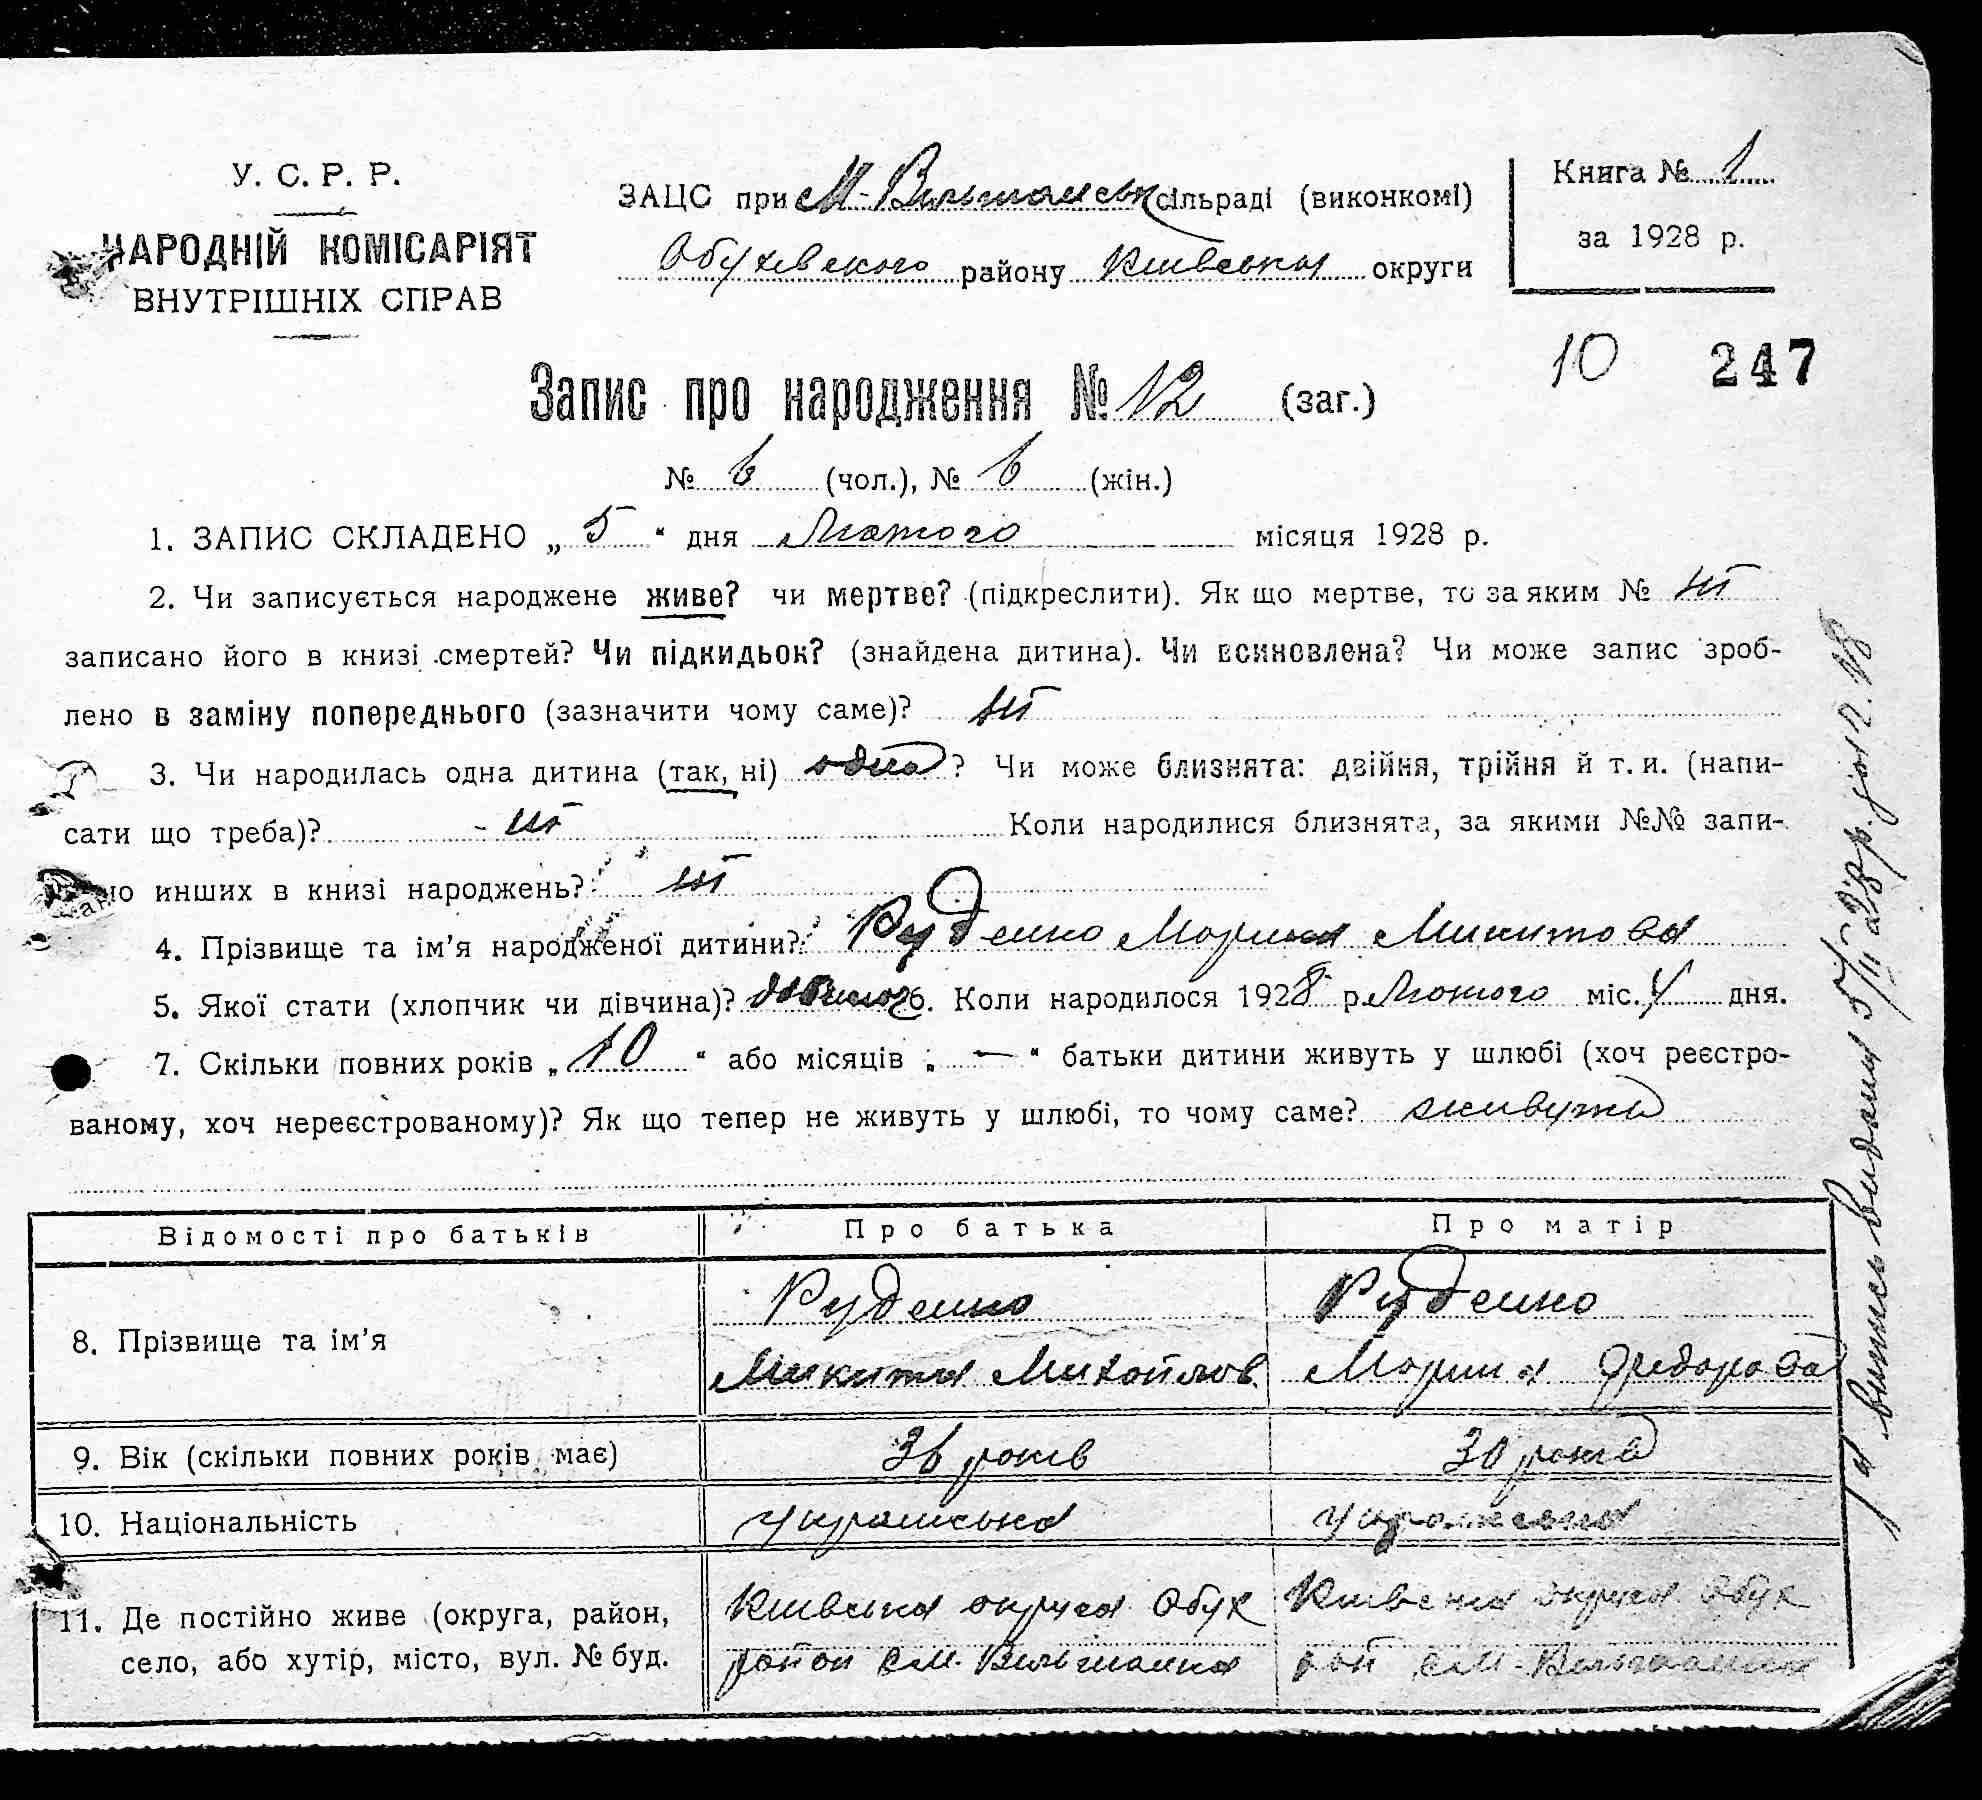 У. С. Р. Р.
НАРОДНІЙ КОМІСАРІЯТ
ВНУТРІШНІХ СПРАВ
ЗАЦС при М-Вільшанськ сільраді (виконкомі)
Обухівского району Київська округи
Книга № 1
за 1928 р.
10 247
Запис про народження № 12 (заг.)
№ 6 (чол.), № 6 (жін.)
1. ЗАПИС СКЛАДЕНО „ 5 “ дня Лютого місяця 1928 р.
2. Чи записується народжене живе? чи мертве? (підкреслити). Як що мертве, то за яким № ні
записано його в книзі смертей? Чи підкидьок? (знайдена дитина). Чи всиновлена? Чи може запис зроб-
лено в заміну попереднього (зазначити чому саме)? ні
3. Чи народилась одна дитина (так, ні) одна? Чи може близнята: двійня, трійня й т. и. (напи-
сати що треба)? - ні Коли народилися близнята, за якими №№ запи-
сано инших в книзі народжень? ні
4. Прізвище та ім’я народженої дитини? Руденко Мария Микитова
5. Якої стати (хлопчик чи дівчина)? 6. Коли народилося 1928 р. Лютого міс. 4 дня.
7. Скільки повних років „ 10 “ або місяців „ — “ батьки дитини живуть у шлюбі (хоч реєстро-
ваному, хоч нереєстрованому)? Як що тепер не живуть у шлюбі, то чому саме? живуть
Відомості про батьків Про батька Про матір
8. Прізвище та ім’я Руденко Микита Михайлов. Руденко Мария Федорова
9. Вік (скільки повних років має) 36 років 30 років
10. Національність українська українська
11. Де постійно живе (округа, район,
село, або хутір, місто, вул. № буд.
Київська округа Обух
район с М. Вільшанка
Київська округа Обух
рай с М-Вільшанка
1а випись видана 5/II 28 р. за № 18